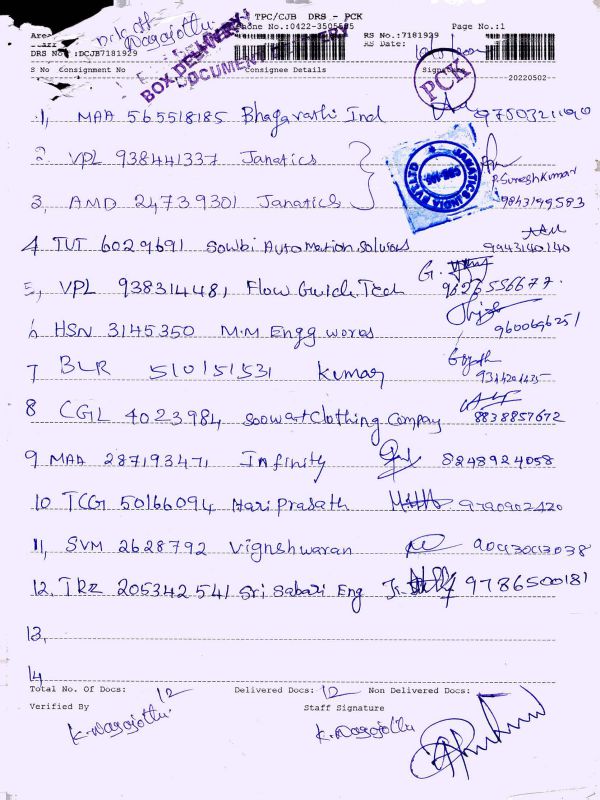 TPC/CJB DRS - PCK
Phone No.:0422-3505575 Page No.:1
Area
Staff RS No.:7181929
DRS No :DCJB7181929 RS Date:
BOX DELIVERY
DOCUMENT DELIVERY
S No Consignment No Consignee Details Signature 20220502
PCK
1, MAA 565518185 Bhagavathi Ind
2. VPL 938441337 Janatics
JANATICS INDIA PVT LTD
P. Sureshkumar
3, AMD 24739301 Janatics 9843199583
4 TUT 6029691 Sowbi Automation Solutions 9943140140
5, VPL 938314481 Flow Guide Tech
6 HSN 3145350 M.M Engg works 9600696251
7 BLR 510151531 Kumar
8 CGL 4023984 Soowart Clothing Compay 8838857672
9 MAA 287193471 Infinity 8248924058
10 TCG 50166094 Hari Prasath 9790902420
11, SVM 2628792 Vigneshwaran
12. TRZ 205342541 Sri Sabari Eng 9786500181
13,
14
Total No. Of Docs: 12 Delivered Docs: 12 Non Delivered Docs:
Verified By Staff Signature